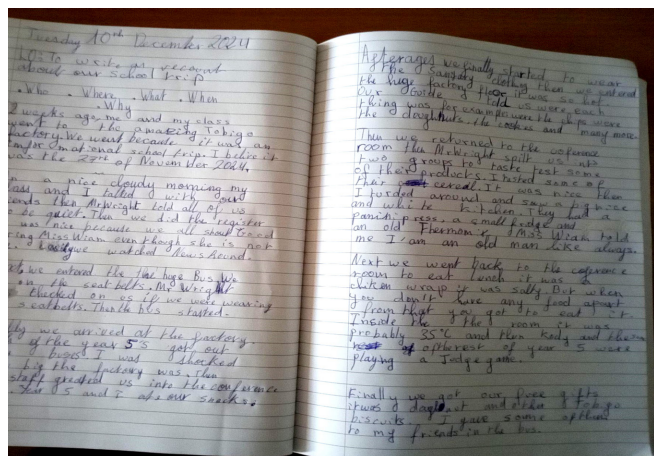 Tuesday 10th December 2024
LO: To write a recount
about our school trip
. Who . Where . What . When
. Why
2 weeks ago, me and my class
went to the amazing Tobigo
factory. We went because it was an
informational school trip. I belive it
was the 27th of November 2024.
on a nice cloudy morning my
and I talked with our
ends then Mr Wright told all of us
to be quiet. Then we did the register
was nice because we all shouted
ing Miss Wiam even though she is not
we watched News Round.
we entered the huge Bus. We
on the seat belts. Mr Wright
checked on us if we were wearing
seatbelts. Then the bus started.
we arrived at the factory.
of the year 5's got out
buses I was shocked
big the factory was. Then
staff greeted us into the conference
Year 5 and I ate our snacks.
Afterages we finally started to wear
the sansary clothing then we entered
the huge factory floor it was so hot.
Our Guide told us were each
thing was for example were the chips were
the doughnuts, the cookies and many more.
Then we returned to the coference
room then Mr Wright split us into
two groups to taste test some
of their products. I tasted some of
thair cereal. It was nice then
I turded around and saw a big nice
and white kitchen. They had a
panini press, a small fridge and
an old Thermomix. Miss Wiam told
me I'am an old man like always.
Next we went back to the coference
room to eat leach it was a
chiken wrap it was salty But when
you don't have any food apart
from that you got to eat it.
Inside the the room it was
probably 35°C and then Kody and the
of therest of year 5 were
playing a Jodge game.
Finally we got our free gifts
it was a and other Tobigo
biscuits. I gave some of them
to my friends in the bus.